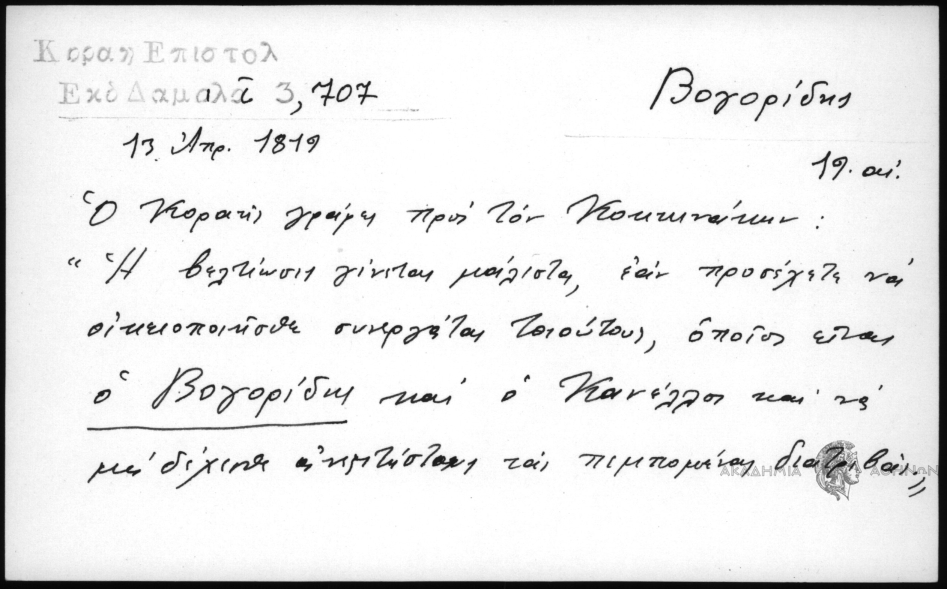 Κοραη Επιστολ
Εκδ Δαμαλα ā 3, 707
Βογορίδης
13 Ἀπρ. 1819
19. αἰ.
Ὁ Κοραῆς γράφει πρὸς τὸν Κοκκινάκην :
“ Ἡ βελτίωσις γίνεται μάλιστα, ἐὰν προσέχετε νὰ
οἰκειοποιῆσθε συνεργάτας τοιούτους, ὁποῖος εἶναι
ὁ Βογορίδης καὶ ὁ Κανέλλος καὶ νὰ
μὴ δέχεσθε ἀνεξετάστους τὰς πεμπομένας διατριβάς „
ΑΚΑΔΗΜΙΑ ΑΘΗΝΩΝ